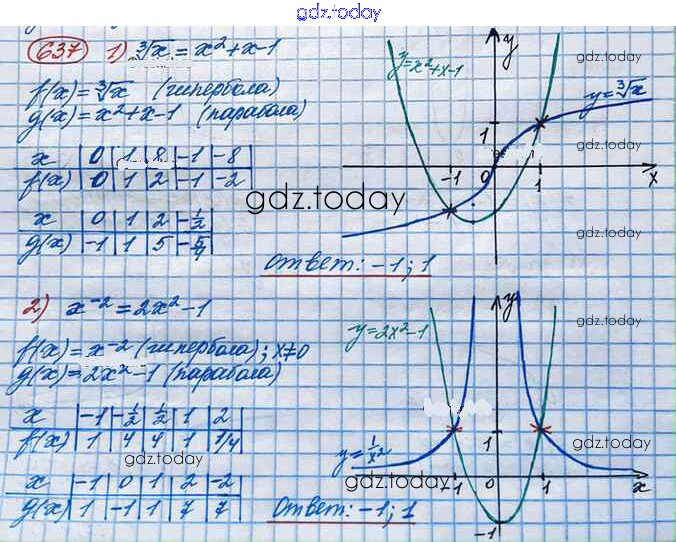 gdz.today
637 1) ∛x = x² + x - 1
f(x) = ∛x (гипербола)
g(x) = x² + x - 1 (парабола)
x | 0 | 1 | 8 | -1 | -8
f(x) | 0 | 1 | 2 | -1 | -2
x | 0 | 1 | 2 | -1/2
g(x) | -1 | 1 | 5 | -5/4
ответ: -1; 1
y = x² + x - 1
y
gdz.today
y = ∛x
1
gdz.today
-1 0 1 x
gdz.today
gdz.today
2) x⁻² = 2x² - 1
f(x) = x⁻² (гипербола); x ≠ 0
g(x) = 2x² - 1 (парабола)
x | -1 | -1/2 | 1/2 | 1 | 2
f(x) | 1 | 4 | 4 | 1 | 1/4
gdz.today
x | -1 | 0 | 1 | 2 | -2
g(x) | 1 | -1 | 1 | 7 | 7
ответ: -1; 1
y
y = 2x² - 1
gdz.today
1
gdz.today
y = 1/x²
gdz.today
-1 1 x
-1